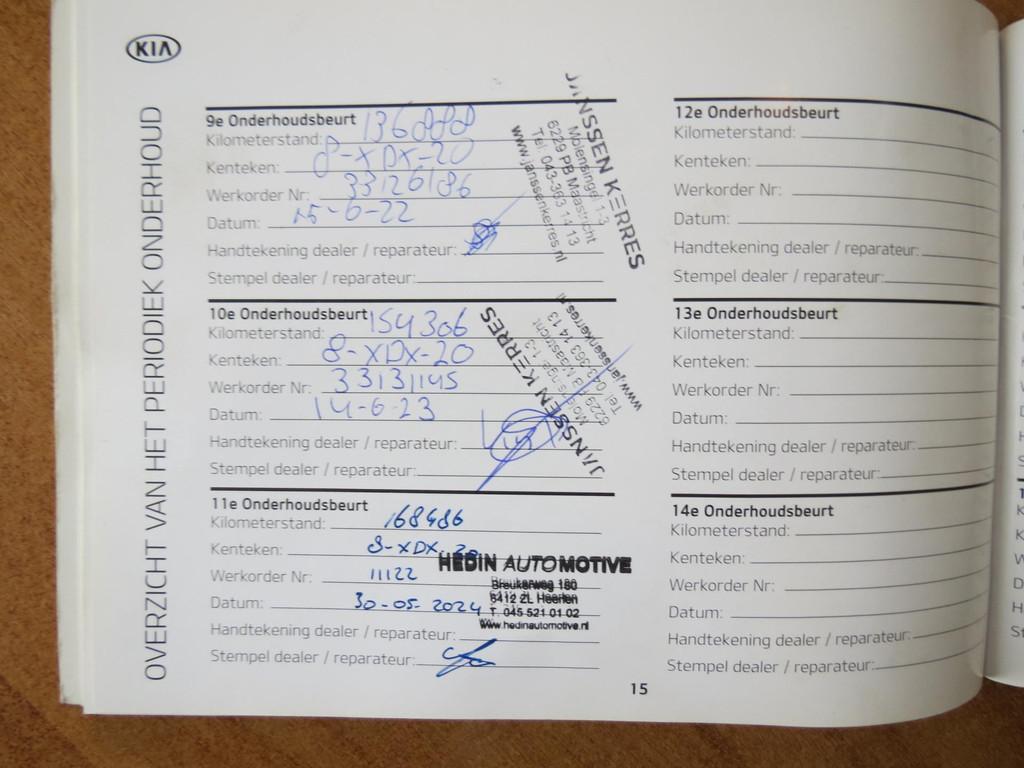 KIA
OVERZICHT VAN HET PERIODIEK ONDERHOUD
9e Onderhoudsbeurt
Kilometerstand: 136888
Kenteken: 8-XDX-20
Werkorder Nr: 33126186
Datum: 15-6-22
Handtekening dealer / reparateur:
Stempel dealer / reparateur:
JANSSEN KERRES
Molensingel 1-3
6229 PB Maastricht
Tel. 043-363 14 13
www.janssenkerres.nl
10e Onderhoudsbeurt
Kilometerstand: 154306
Kenteken: 8-XDX-20
Werkorder Nr: 33131145
Datum: 14-6-23
Handtekening dealer / reparateur:
Stempel dealer / reparateur:
JANSSEN KERRES
Molensingel 1-3
6229 PB Maastricht
Tel. 043-363 14 13
www.janssenkerres.nl
11e Onderhoudsbeurt
Kilometerstand: 168486
Kenteken: 8-XDX-20
Werkorder Nr: 11122
Datum: 30-05-2024
Handtekening dealer / reparateur:
Stempel dealer / reparateur:
HEDIN AUTOMOTIVE
Breukerweg 180
6412 ZL Heerlen
T. 045 521 01 02
www.hedinautomotive.nl
12e Onderhoudsbeurt
Kilometerstand:
Kenteken:
Werkorder Nr:
Datum:
Handtekening dealer / reparateur:
Stempel dealer / reparateur:
13e Onderhoudsbeurt
Kilometerstand:
Kenteken:
Werkorder Nr:
Datum:
Handtekening dealer / reparateur:
Stempel dealer / reparateur:
14e Onderhoudsbeurt
Kilometerstand:
Kenteken:
Werkorder Nr:
Datum:
Handtekening dealer / reparateur:
Stempel dealer / reparateur:
15